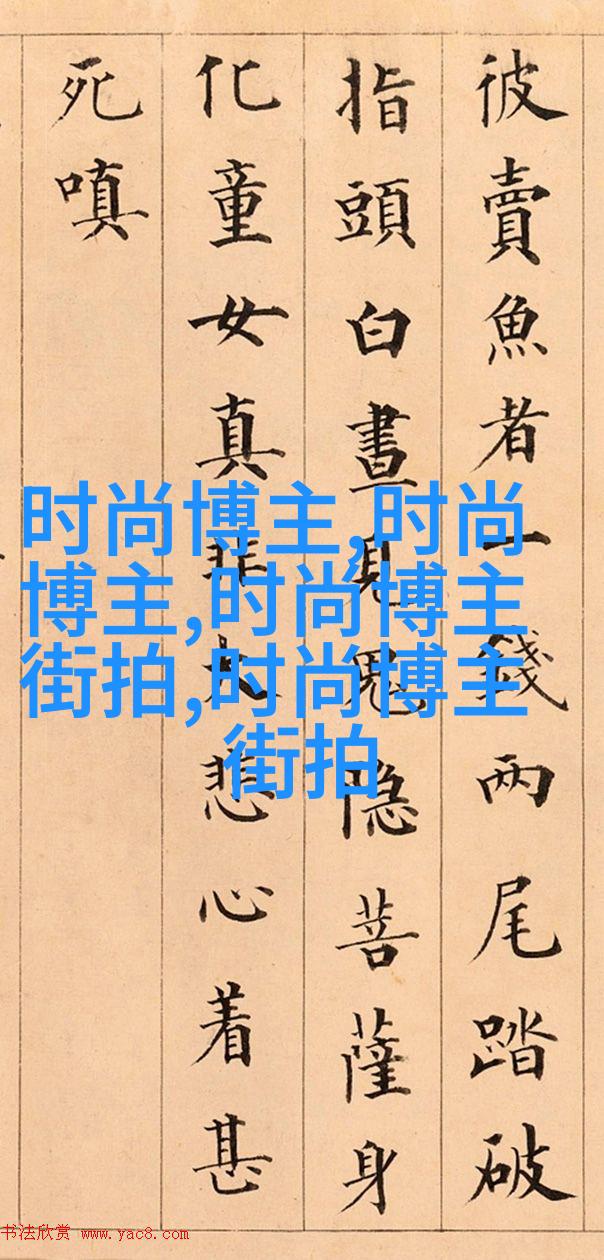 彼賣魚者一錢两尾踏破
指頭白晝見鬼隐菩薩身
化童女真非大悲心着甚
死嗔
时尚博主,时尚
博主,时尚博主
街拍,时尚博主
街拍
书法欣赏 www.yac8.com